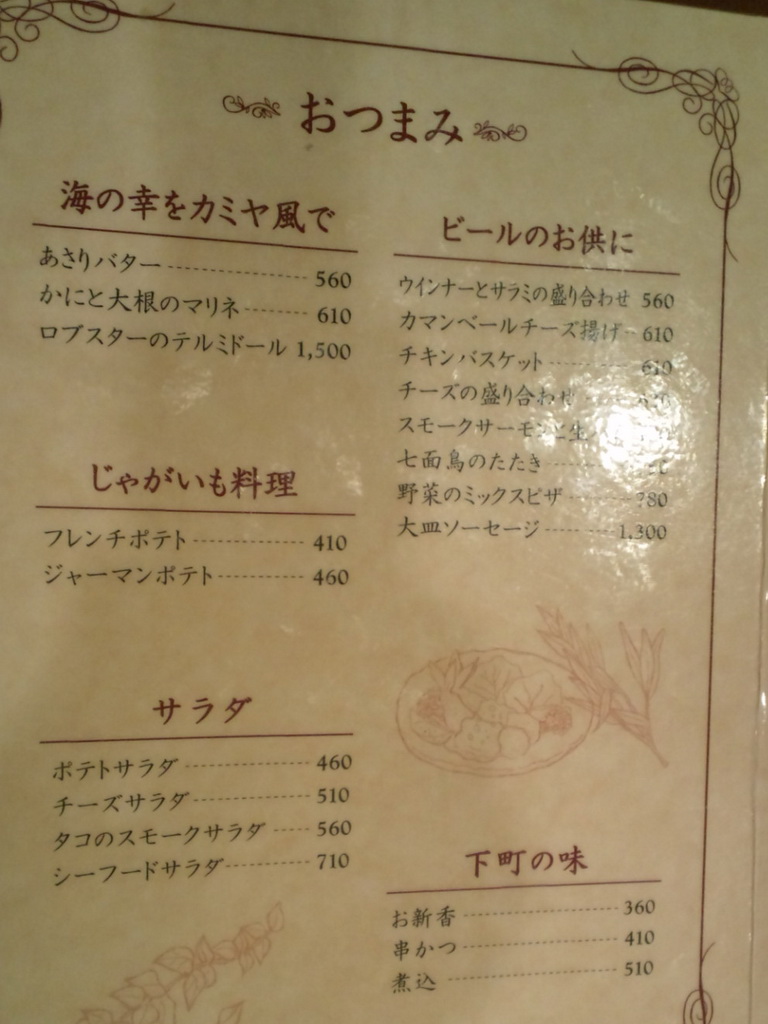 おつまみ
海の幸をカミヤ風で
あさりバター 560
かにと大根のマリネ 610
ロブスターのテルミドール 1,500
じゃがいも料理
フレンチポテト 410
ジャーマンポテト 460
サラダ
ポテトサラダ 460
チーズサラダ 510
タコのスモークサラダ 560
シーフードサラダ 710
ビールのお供に
ウインナーとサラミの盛り合わせ 560
カマンベールチーズ揚げ 610
チキンバスケット 610
チーズの盛り合わせ
スモークサーモンと生
七面鳥のたたき
野菜のミックスピザ 780
大皿ソーセージ 1,300
下町の味
お新香 360
串かつ 410
煮込 510